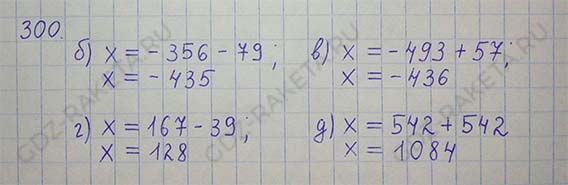 300.
б) x = - 356 - 79;
x = - 435
в) x = - 493 + 57;
x = - 436
г) x = 167 - 39;
x = 128
д) x = 542 + 542
x = 1084
GDZ-RAKETA.RU
GDZ-RAKETA.RU
GDZ-RAKETA.RU